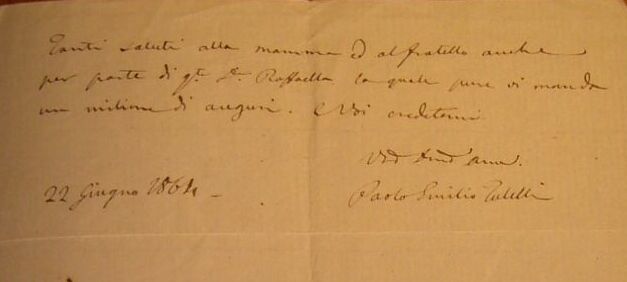 Tanti saluti alla mamma ed al fratello anche
per parte di q.ta D.a Raffaella la quale pure vi manda
un milione di auguri. E Voi credetemi
22 Giugno 1864
Paolo Emilio Tulelli